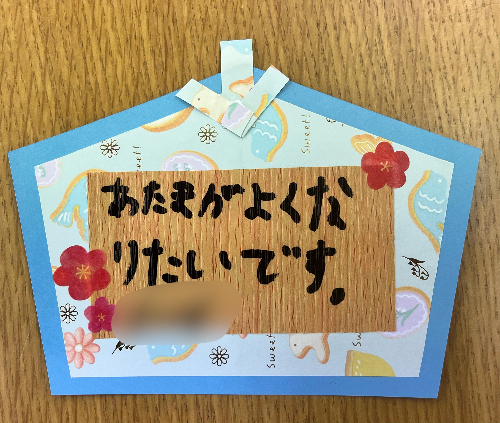 Sweet!
Sweet!
あたまがよくな
りたいです。
Sweet
Sweet